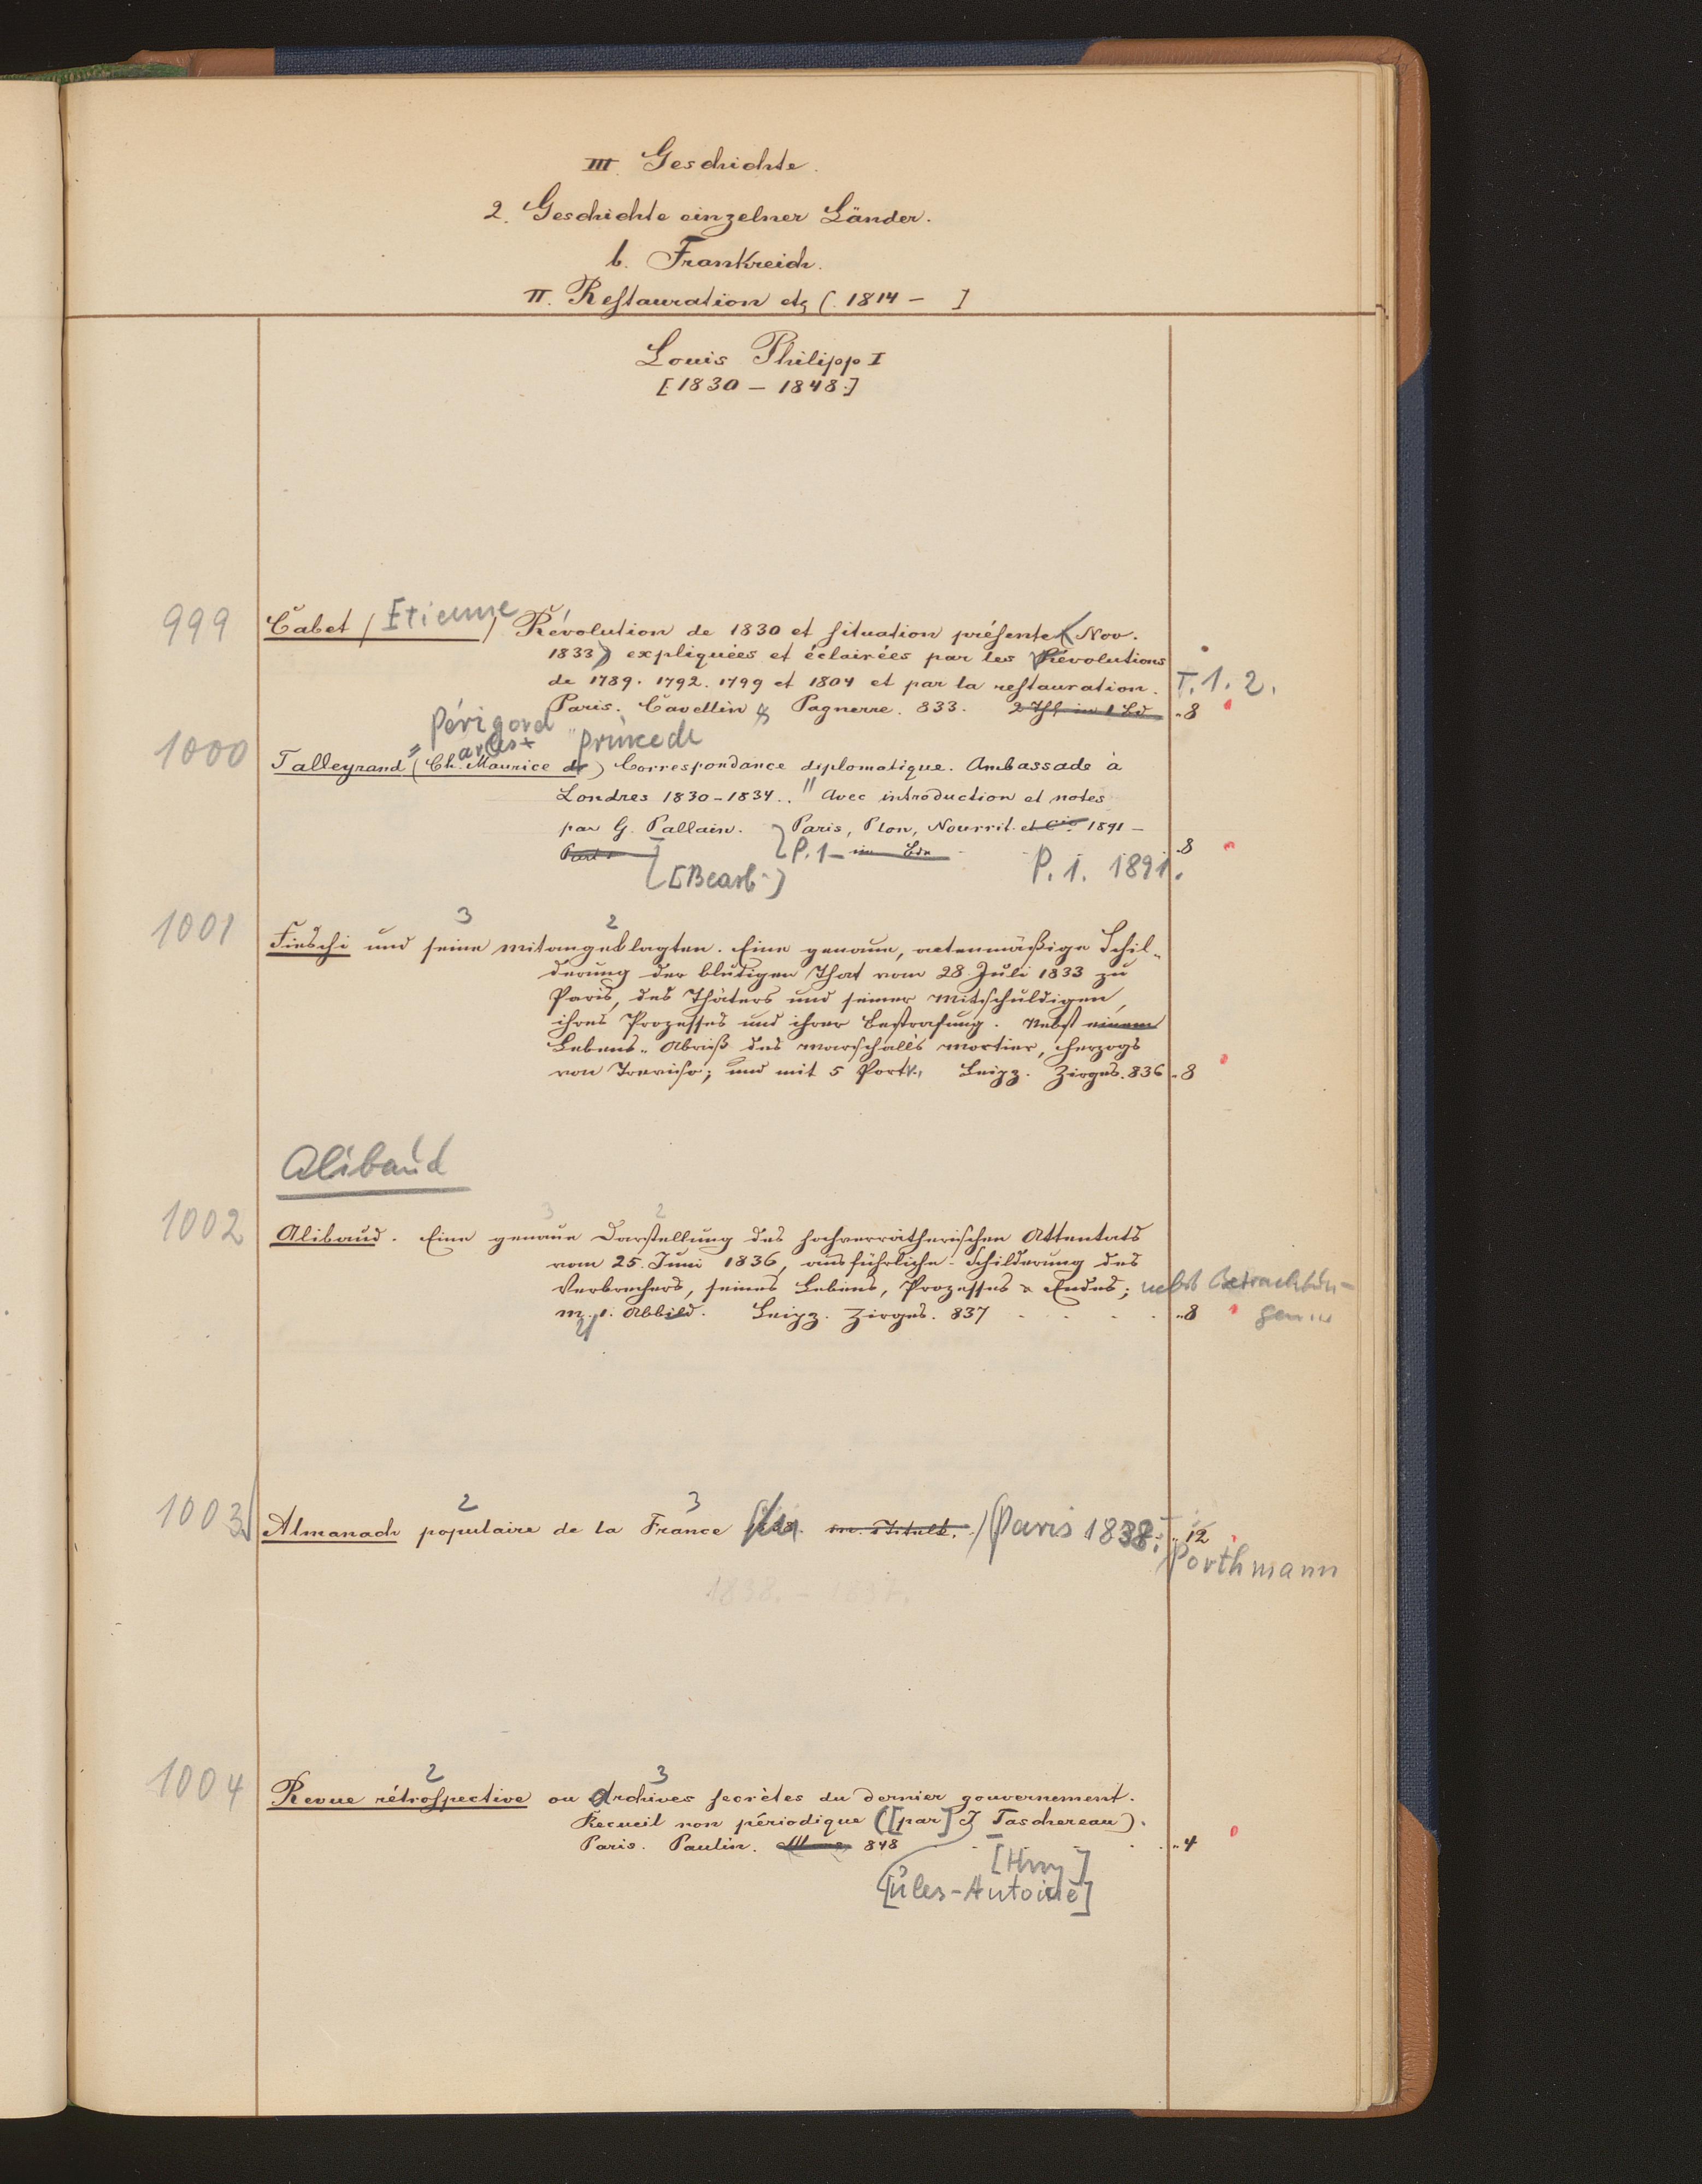 III. Geschichte.
2. Geschichte einzelner Länder.
b. Frankreich.
II. Restauration etz (. 1814 – ]
Louis Philipp I
[1830 – 1848.]
999 Cabet / Etienne / Révolution de 1830 et situation présente (Nov.
1833) expliquées et éclairées par les Révolutions
de 1789. 1792. 1799 et 1804 et par la restauration. T. 1. 2.
Paris. Cavellin & Pagnerre. 833. 2 Thl. in 1 Bd. „8
Périgord
arles prince de
1000 Talleyrand (Ch. Maurice de) Correspondance diplomatique. Ambassade à
Londres 1830–1834.. " Avec introduction et notes
par G. Pallain. Paris, Plon, Nourrit. et Cie. 1891 –
Part 1 P. 1 – im Bdn „8
[Bearb.] P. 1. 1891.
3 2
1001 Fieschi und seine Mitangeklagten. Eine genaue, actenmäßige Schil„
derung der blutigen That vom 28. Juli 1833 zu
Paris, des Thäters und seiner Mitschuldigen,
ihres Prozesses und ihrer Bestrafung. Nebst einem
Lebens„Abriß des Marschalls Mortier, Herzogs
von Treviso; und mit 5 Portr., Leipz. Zirges. 836 „8
Alibaud
3 2
1002 Alibaud. Eine genaue Darstellung des hochverrätherischen Attentats
vom 25. Juni 1836, ausführliche Schilderung des
Verbrechers, seines Lebens, Prozesses & Endes; nebst Betrachtun-
m. 1. Abbild. Leipz. Zirges. 837 „8 gen ...
2 3
1003 Almanach populaire de la France 1838. Paris 1838: „12
Porthmann
1838. – 1837.
2 3
1004 Revue rétrospective ou Archives secrètes du dernier gouvernement.
Recueil non périodique ([par] J Taschereau).
Paris. Paulin. 848 „4
[Hrsg]
[ules-Antoine]